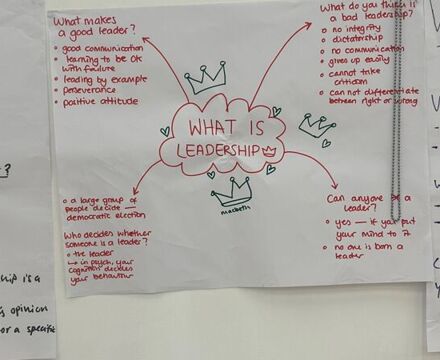 What makes
a good leader?
• good communication
• learning to be OK
with failure
• leading by example
• perseverance
• positive attitude
What do you think is
a bad leadership?
• no integrity
• dictatorship
• no communication
• gives up easily
• cannot take
criticism
• can not differentiate
between right or wrong
WHAT IS
LEADERSHIP
macbeth
• a large group of
people decide —
democratic election
Who decides whether
someone is a leader?
• the leader
↳ in psych, your
cognition decides
your behaviour
Can anyone a
leader?
• yes — if you put
your mind to it
• no one is born a
leader
?
ship is a
opinion
or a specific